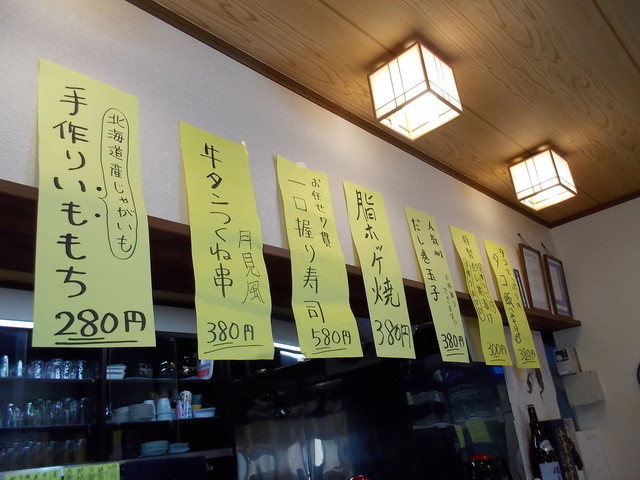 北海道産じゃがいも
手作りいももち
280円
牛タンつくね串
月見風
380円
お任せ7貫
一口握り寿司
580円
脂ホッケ焼
380円
人気No1
だし巻玉子
380円
300円
380円